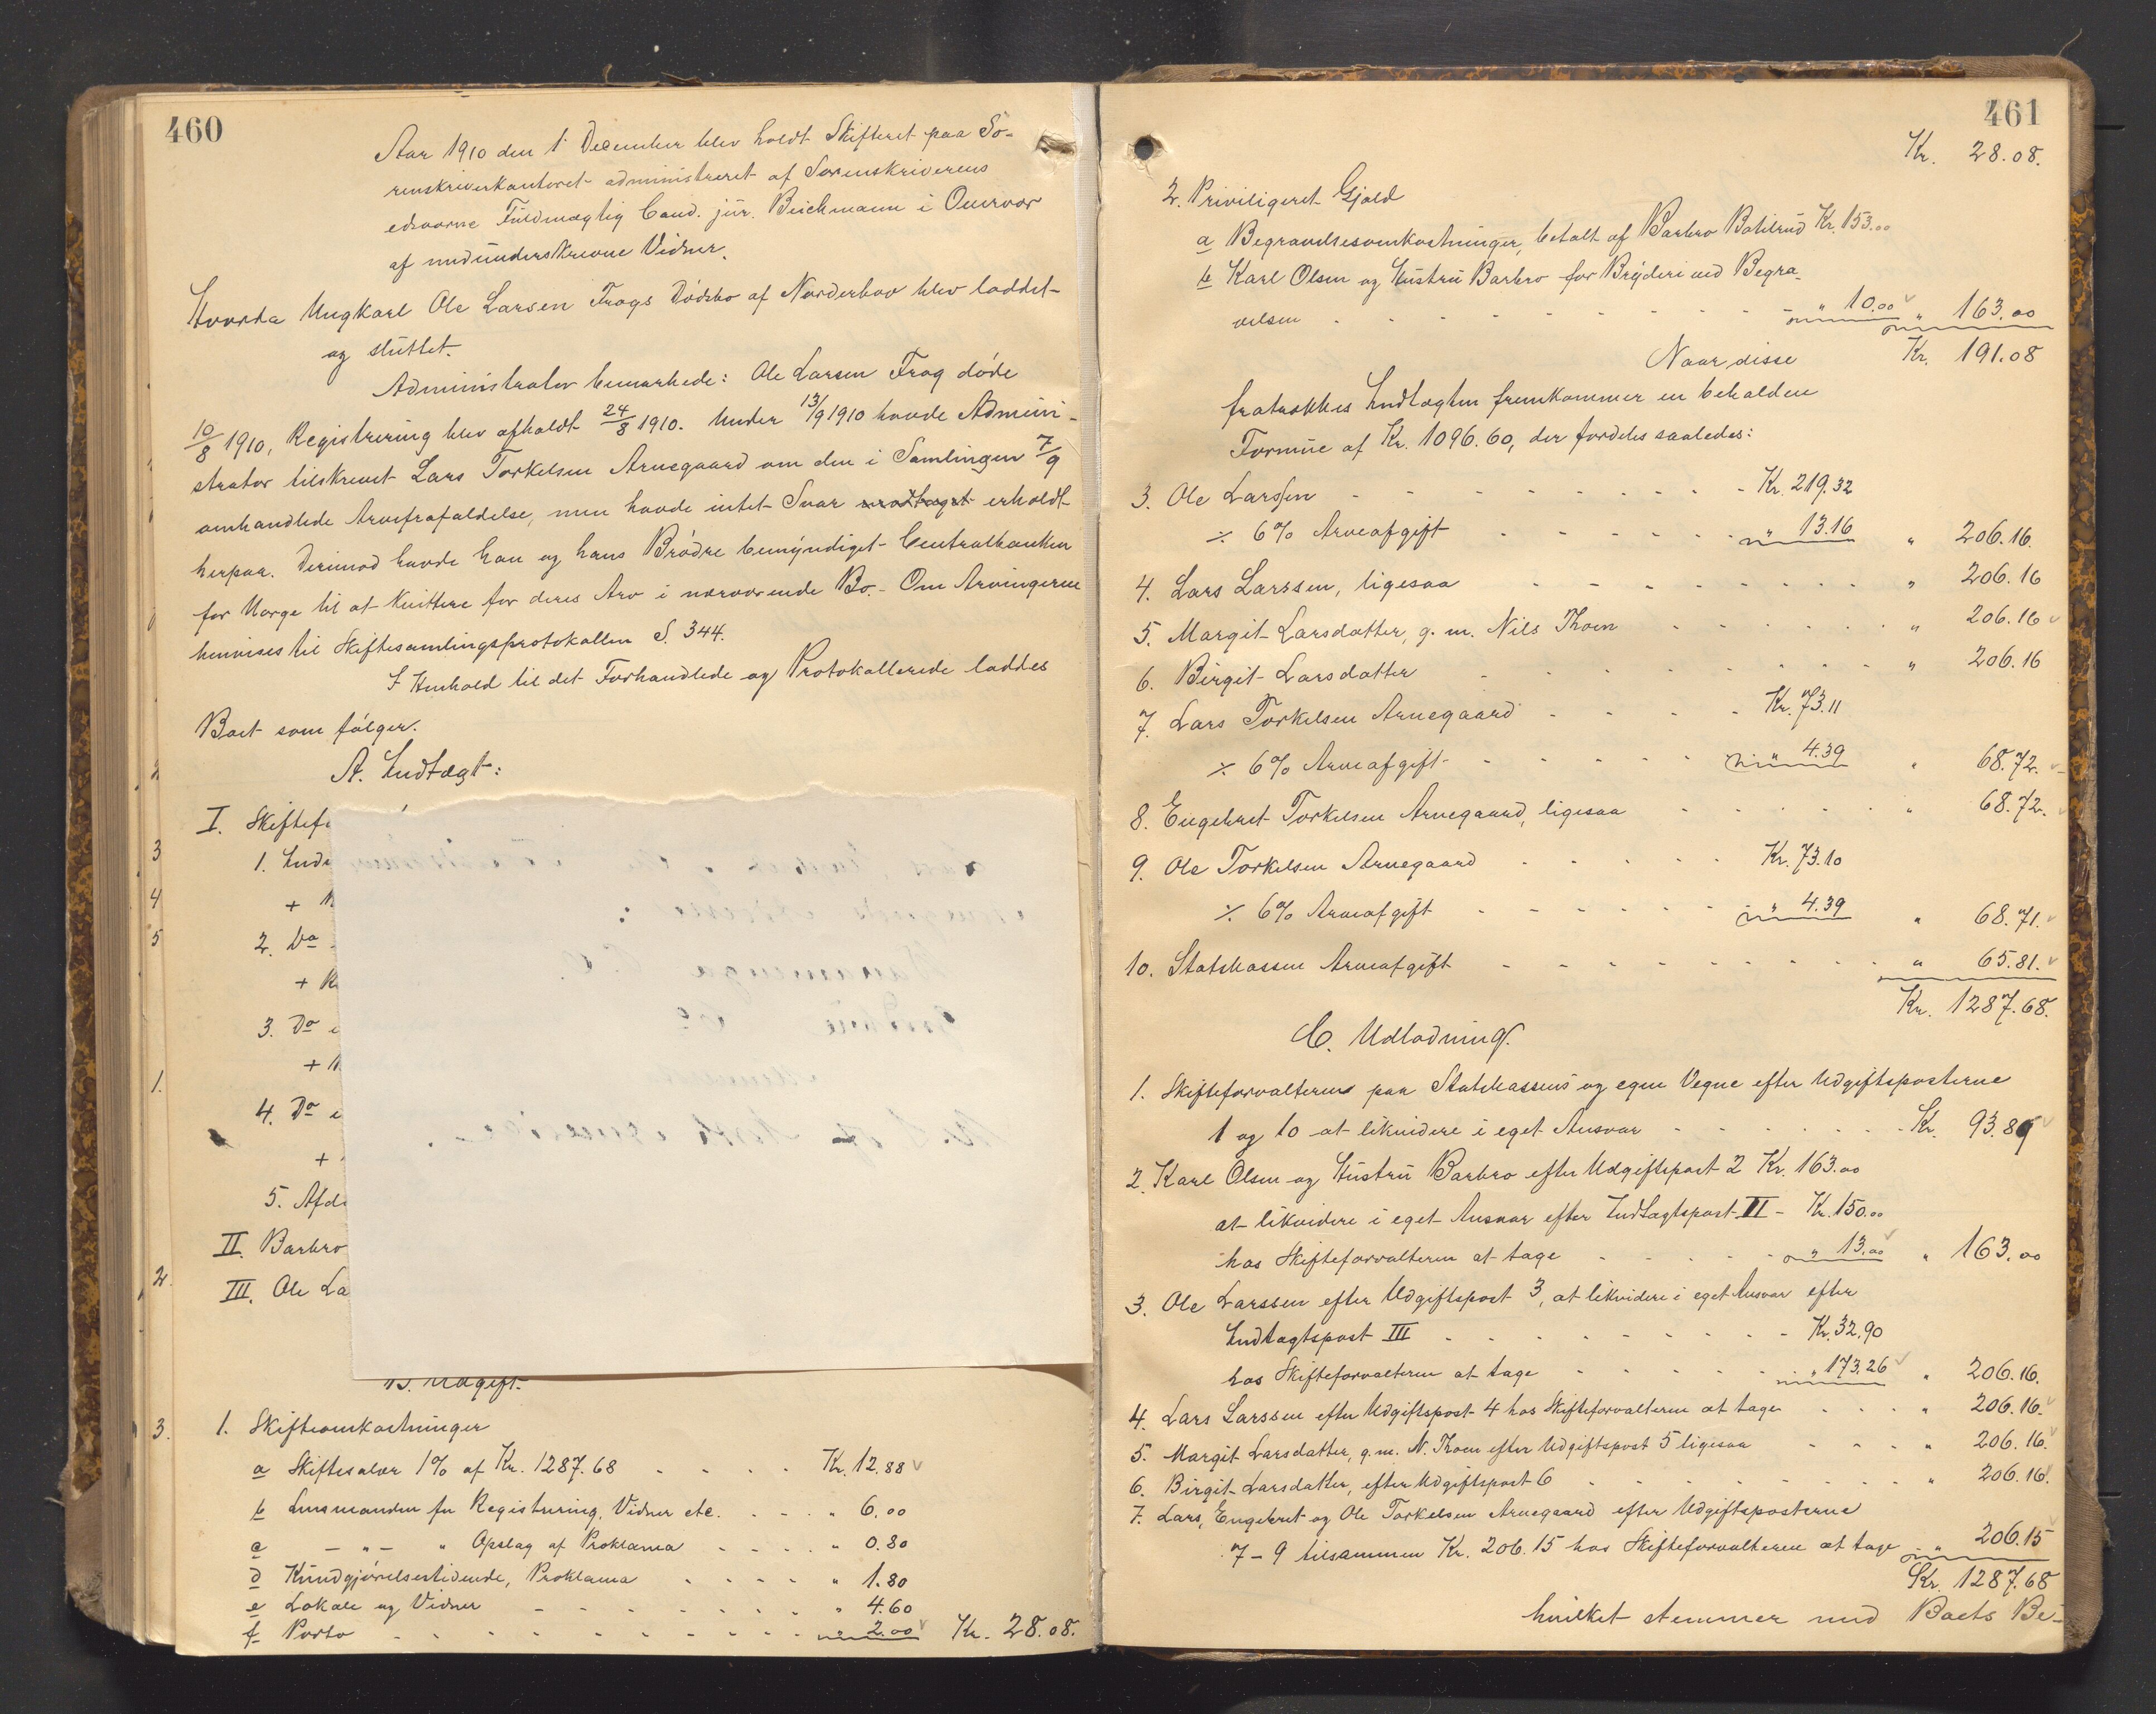 460
Aar 1910 den 1 December blev holdt Skifteret paa So-
renskriverkontoret administreret af Sorenskriverens
edsvorne Fuldmægtig Cand. jur. Beichmann i Overvær
af medunderskrevne Vidner.
Hvorda Ungkarl Ole Larsen Frøgs Dødsbo af Norderhov blev loddet
og sluttet.
Administrator bemærkede: Ole Larsen Frøg døde
10/8 1910, Registrering blev afholdt 24/8 1910. Under 13/9 1910 havde Admini-
strator tilskrevet Lars Torkelsen Arnegaard om den i Samlingen 7/9
omhandlede Arvefrafaldelse, men havde intet Svar modtaget erholdt
herpaa. Derimod havde han og hans Brødre bemyndiget Centralbanken
for Norge til at kvittere for deres Arv i nærværende Bo. - Om Arvingerne
henvises til Skiftesamlingsprotokollen S. 344.
I Henhold til det Forhandlede og Protokollerede loddes
Boet som følger.
A. Indtægt:
I. Skiftef
1. Inds
+
2. Do
+ R
3. Do i
+
4. Do i
+
5. Afd
II. Barbro
III. Ole La
B. Udgift
1. Skifteomkostninger
a Skiftesalær 1% af Kr. 1287.68 - - - - Kr. 12.88
b Lensmanden for Registrering, Vidner etc. - - - " 6.00
c - " - " Opslag af Proklama - - - - " 0.80
d Kundgjørelsestidende, Proklama - - - - " 1.80
e Lokale og Vidner - - - - - - - " 4.60
f Porto - - - - - - - - - " 2.00 Kr. 28.08.
461
Kr. 28.08.
2. Priviligeret Gjæld
a Begravelsesomkostninger, betalt af Barbro Botilrud Kr. 153.00
b Karl Olsen og Hustru Barbro for Bryderi ved Begra-
velsen - - - - - - - - - " 10.00 " 163.00
Naar disse Kr. 191.08
fratrækkes Indtægten fremkommer en beholden
Formue af Kr. 1096.60, der fordeles saaledes:
3. Ole Larssen - - - - - - - - - Kr. 219.32
÷ 6% Arveafgift - - - - - - " 13.16 " 206.16.
4. Lars Larssen, ligesaa - - - - - - - - " 206.16
5. Margit Larsdatter, g. m. Nils Thoen - - - - - - " 206.16
6. Birgit Larsdatter - - - - - - - - - " 206.16
7. Lars Torkelsen Arnegaard - - - - - Kr. 73.11
÷ 6% Arveafgift - - - - - - " 4.39 " 68.72.
8. Engebret Torkelsen Arnegaard, ligesaa - - - - - " 68.72.
9. Ole Torkelsen Arnegaard - - - - - Kr. 73.10
÷ 6% Arveafgift - - - - - - " 4.39 " 68.71.
10. Statskassen Arveafgift - - - - - - - - - - " 65.81.
Kr. 1287.68.
C. Udlodning.
1. Skifteforvalteren paa Statskassens og egne Vegne efter Udgiftsposterne
1 og 10 at likvidere i eget Ansvar - - - - - - - Kr. 93.89
2. Karl Olsen og Hustru Barbro efter Udgiftspost 2 Kr. 163.00
at likvidere i eget Ansvar efter Indtægtspost II - Kr. 150.00
hos Skifteforvalteren at tage - - - - - " 13.00 " 163.00
3. Ole Larssen efter Udgiftspost 3, at likvidere i eget Ansvar efter
Indtægtspost III - - - - - - - - - Kr. 32.90
hos Skifteforvalteren at tage - - - - - - " 173.26 " 206.16.
4. Lars Larssen efter Udgiftspost 4 hos Skifteforvalteren at tage - - - " 206.16.
5. Margit Larsdatter, g. m. N. Thoen efter Udgiftspost 5 ligesaa - - - - " 206.16.
6. Birgit Larsdatter, efter Udgiftspost 6 - - - - - - - - " 206.16.
7. Lars, Engebret og Ole Torkelsen Arnegaard efter Udgiftsposterne
7 - 9 tilsammen Kr. 206.15 hos Skifteforvalteren at tage - " 206.15
Kr. 1287.68
hvilket stemmer med Boets Be-